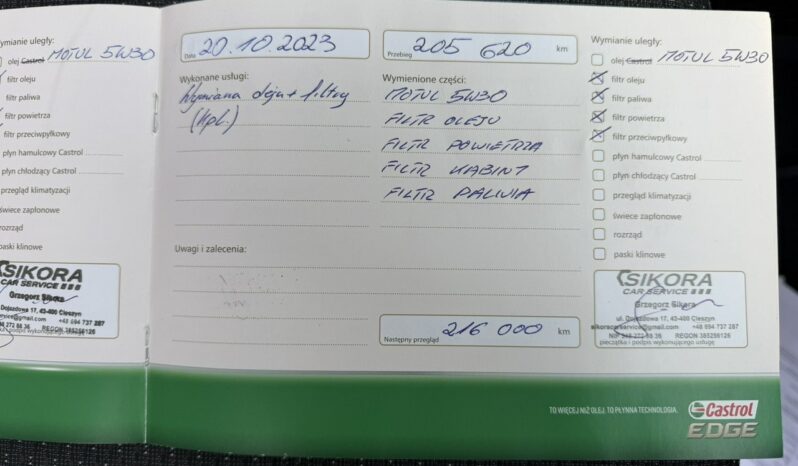 Wymianie uległy:
olej Castrol MOTUL 5W30
filtr oleju
filtr paliwa
filtr powietrza
filtr przeciwpyłkowy
płyn hamulcowy Castrol
płyn chłodzący Castrol
przegląd klimatyzacji
świece zapłonowe
rozrząd
paski klinowe
SIKORA
CAR SERVICE
Grzegorz Sikora
Dojazdowa 17, 43-400 Cieszyn
+48 694 737 287
REGON
Data 20.10.2023
Przebieg 205 620 km
Wykonane usługi:
Wymiana oleju + filtry
(kpl.)
Wymienione części:
MOTUL 5W30
FILTR OLEJU
FILTR POWIETRZA
FILTR KABINY
FILTR PALIWA
Uwagi i zalecenia:
Następny przegląd 216 000 km
Wymianie uległy:
olej Castrol MOTUL 5W30
filtr oleju
filtr paliwa
filtr powietrza
filtr przeciwpyłkowy
płyn hamulcowy Castrol
płyn chłodzący Castrol
przegląd klimatyzacji
świece zapłonowe
rozrząd
paski klinowe
SIKORA
CAR SERVICE
Grzegorz Sikora
ul. Dojazdowa 17, 43-400 Cieszyn
sikoracarservice@gmail.com +48 694 737 287
NIP REGON
pieczątka i podpis wykonującego usługę
TO WIĘCEJ NIŻ OLEJ. TO PŁYNNA TECHNOLOGIA.
Castrol
EDGE